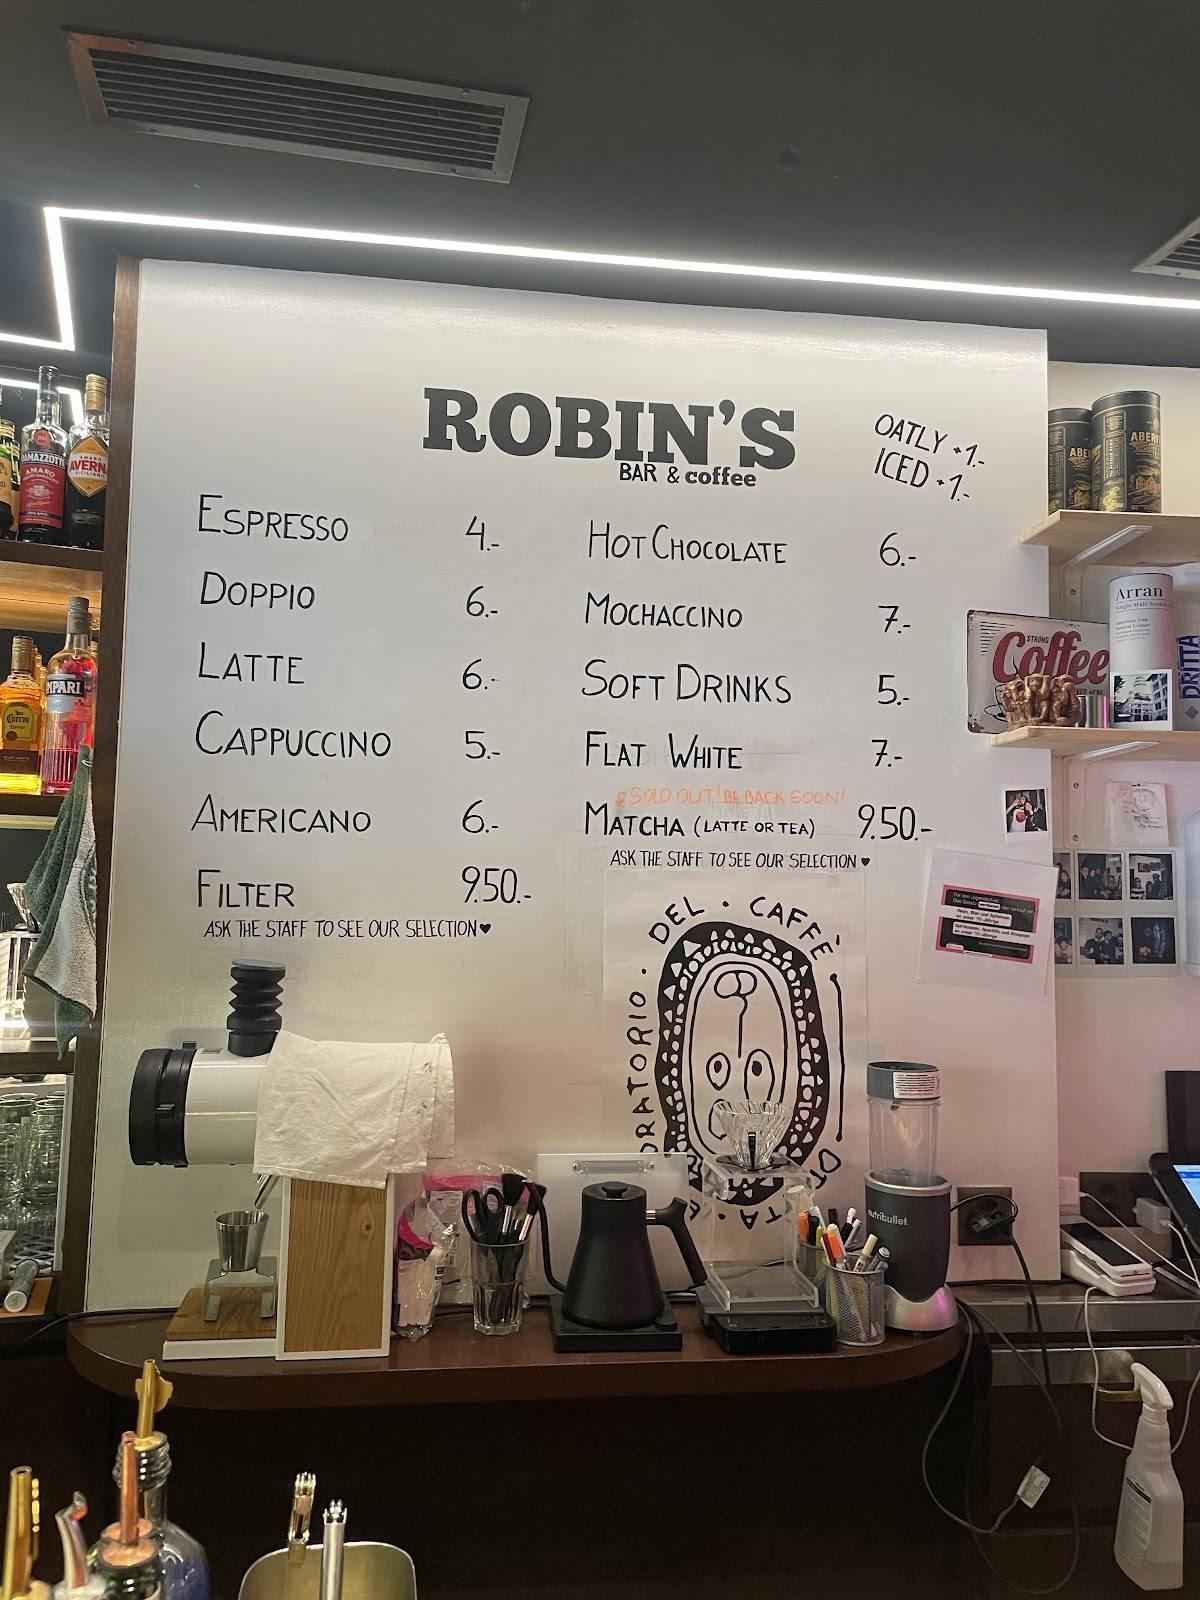 ROBIN'S
BAR & coffee
OATLY +1.-
ICED +1.-
ESPRESSO 4.-
DOPPIO 6.-
LATTE 6.-
CAPPUCCINO 5.-
AMERICANO 6.-
FILTER 9.50.-
ASK THE STAFF TO SEE OUR SELECTION ♥
HOT CHOCOLATE 6.-
MOCHACCINO 7.-
SOFT DRINKS 5.-
FLAT WHITE 7.-
SOLD OUT! BE BACK SOON!
MATCHA (LATTE OR TEA) 9.50.-
ASK THE STAFF TO SEE OUR SELECTION ♥
ORATORIO · DEL · CAFFÈ
RAMAZZOTTI
AMARO
AMARO
AVERNA
SICILIANO
Cuervo
STRONG
Coffee
Arran
Single Malt
DRITTA
nutribullet.